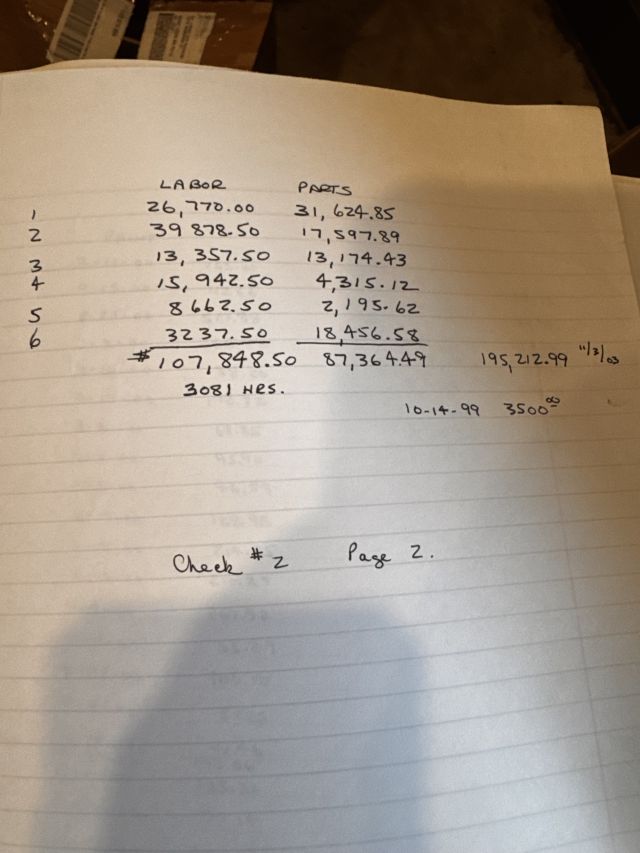 LABOR PARTS
1 26,770.00 31,624.85
2 39 878.50 17,597.89
3 13,357.50 13,174.43
4 15,942.50 4,315.12
5 8662.50 2,195.62
6 3237.50 18,456.58
107,848.50 87,364.49 195,212.99 11/3/03
3081 HRS.
10-14-99 3500 00
Check #2 Page 2.